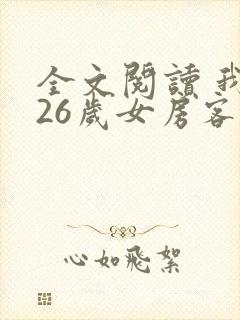 全文閱讀我
26歲女房客
心如飛絮